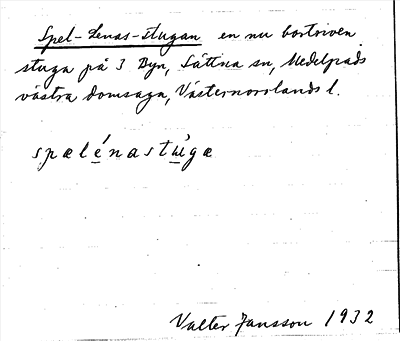 Spel-Lenas-stugan en nu bortriven
stuga på 3 Byn, Sättna sn, Medelpads
västra domsaga, Västernorrlands l.
spælénastu̍gæ
Valter Jansson 1932